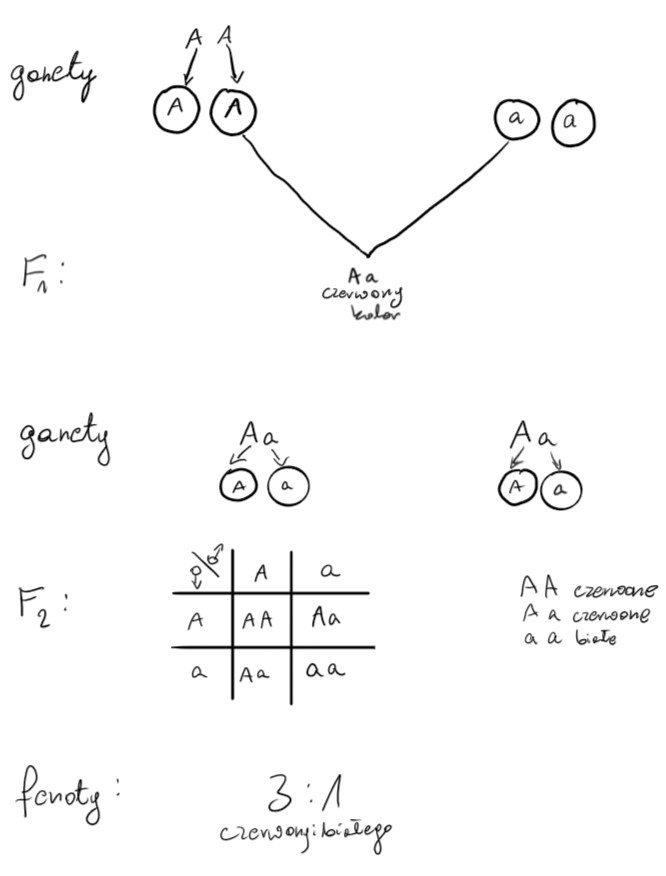 A A
gamety
A A a a
F1:
Aa
czerwony
kolor
gamety
Aa Aa
A a A a
F2:
♀/♂ A a
A AA Aa
a Aa aa
AA czerwone
Aa czerwone
aa białe
fenoty:
3:1
czerwony:białego